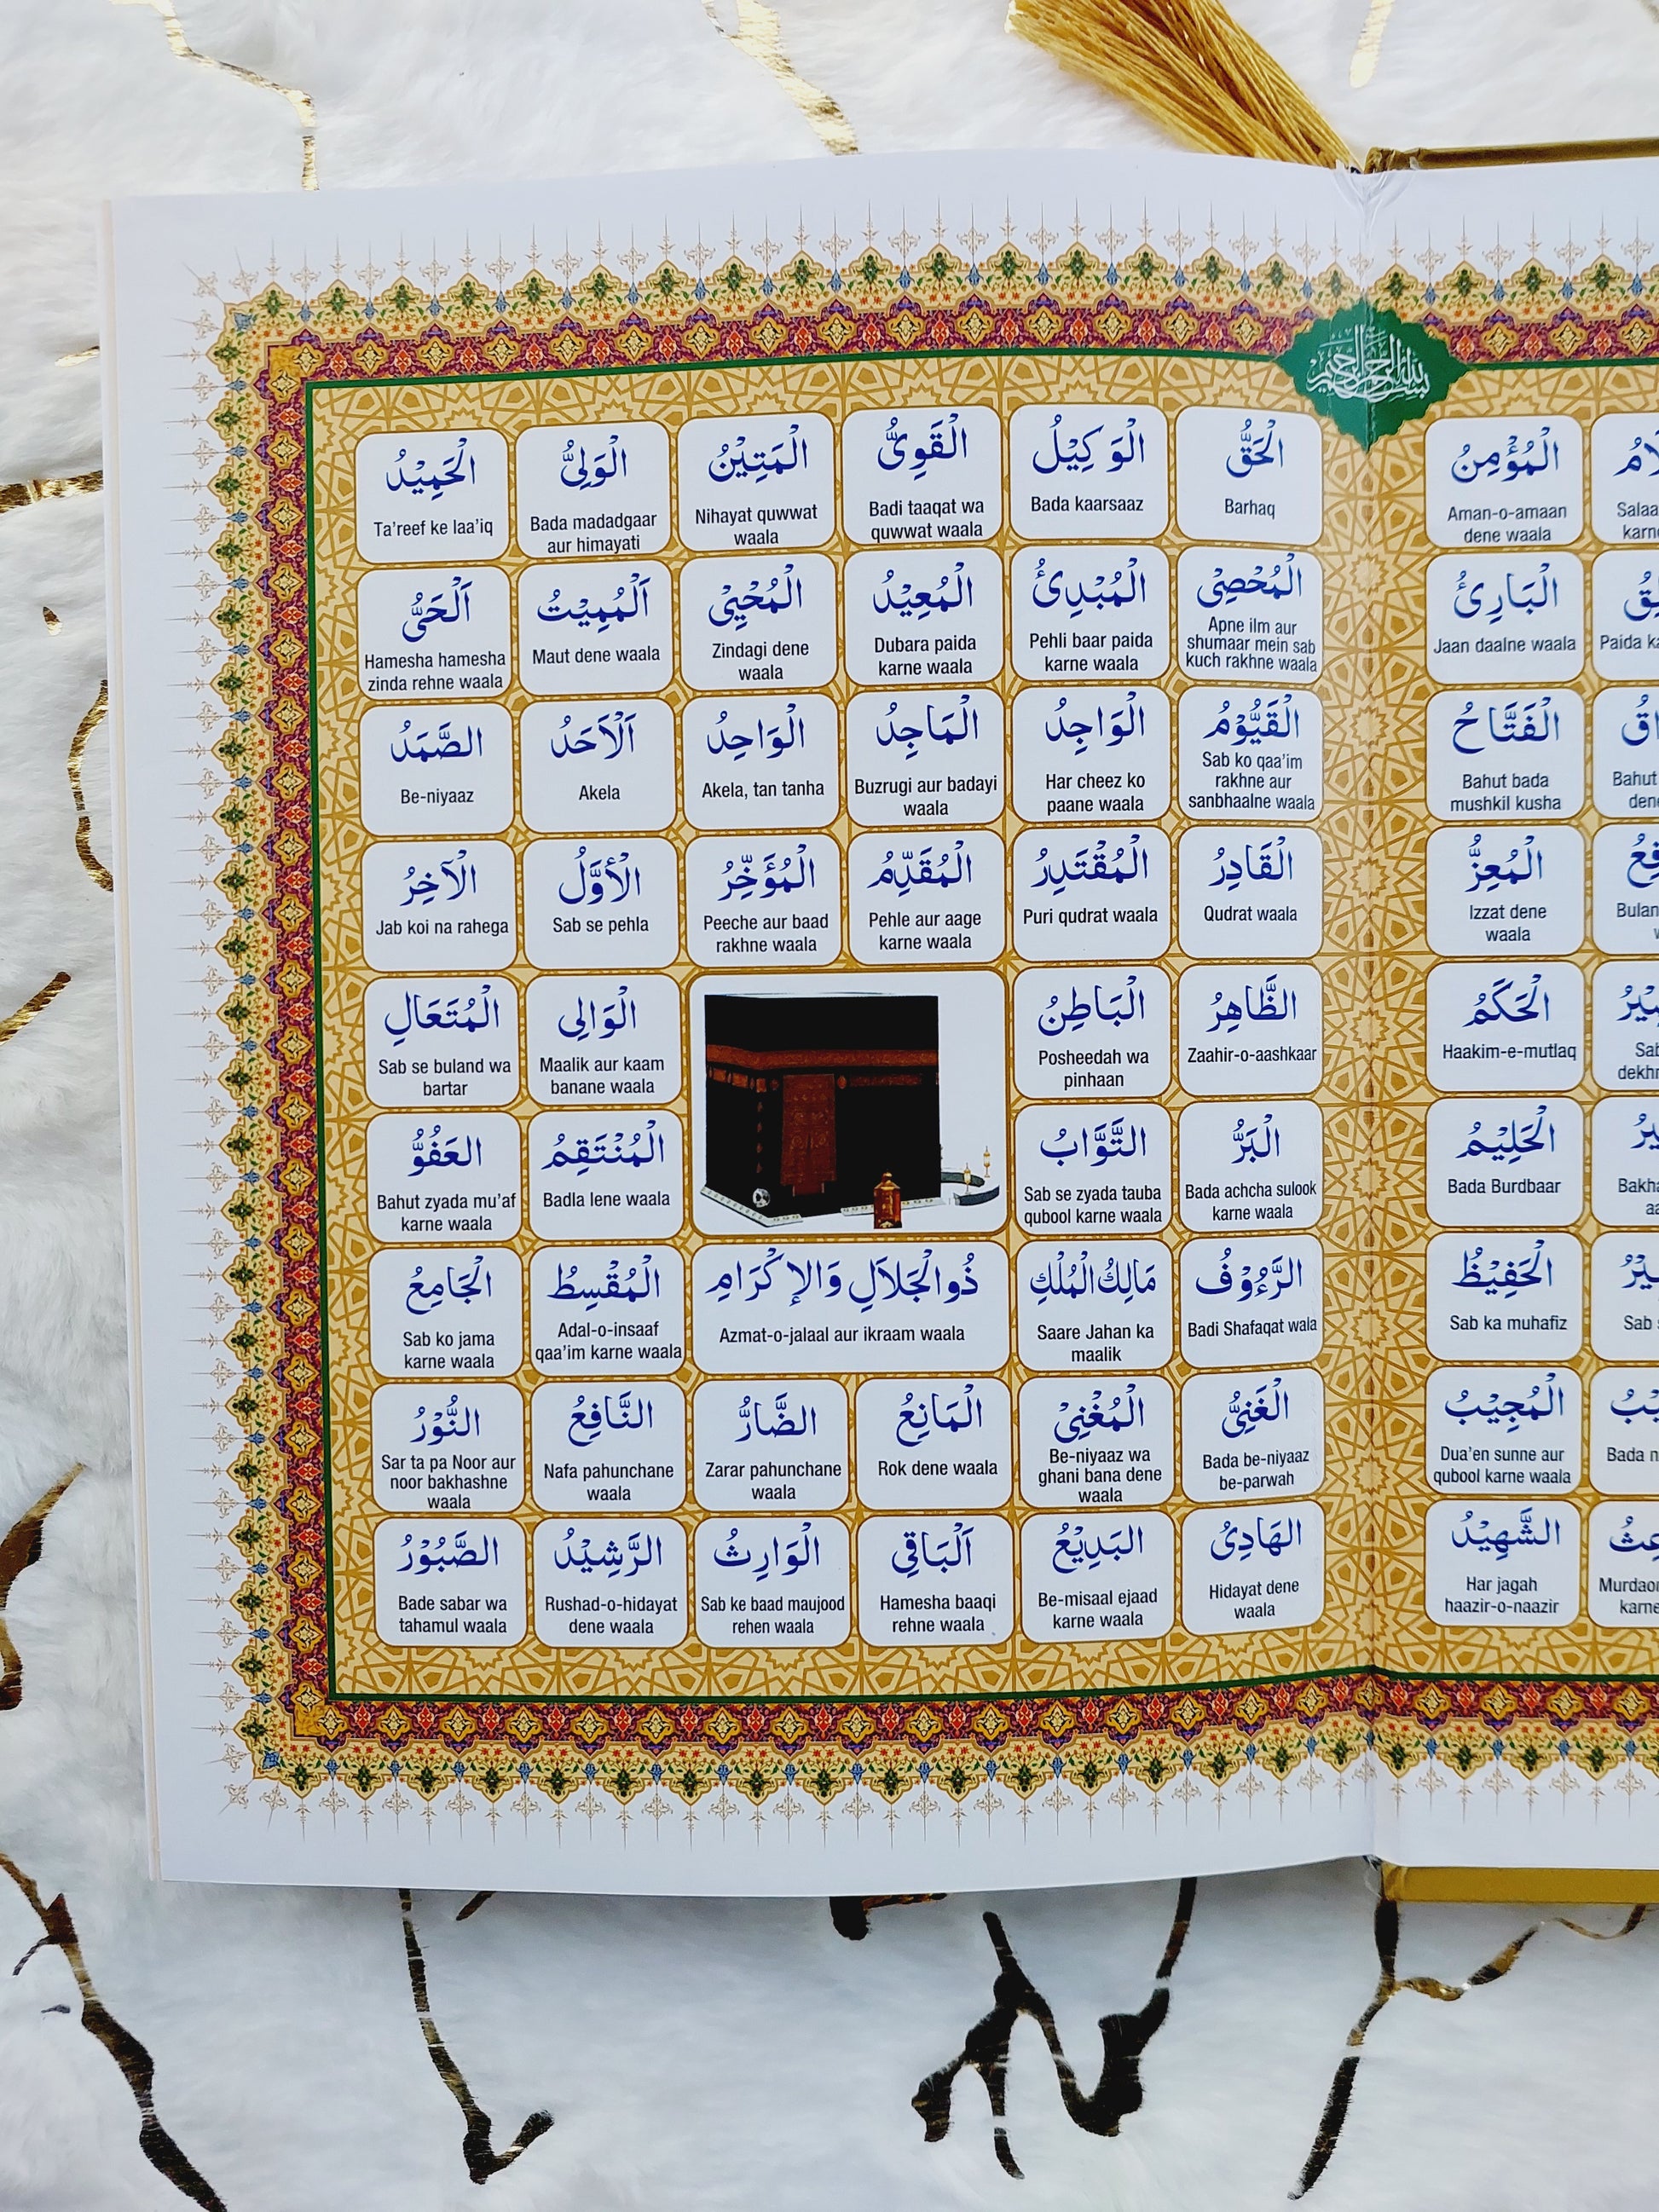 بسم الله الرحمن الرحيم
الْمُؤْمِنُ
Aman-o-amaan
dene waala
الْبَارِئُ
Jaan daalne waala
الْفَتَّاحُ
Bahut bada
mushkil kusha
الْمُعِزُّ
Izzat dene
waala
الْحَكَمُ
Haakim-e-mutlaq
الْحَلِيْمُ
Bada Burdbaar
الْحَفِيْظُ
Sab ka muhafiz
الْمُجِيْبُ
Dua'en sunne aur
qubool karne waala
الشَّهِيْدُ
Har jagah
haazir-o-naazir
الْحَقُّ
Barhaq
الْوَكِيْلُ
Bada kaarsaaz
الْقَوِيُّ
Badi taaqat wa
quwwat waala
الْمَتِيْنُ
Nihayat quwwat
waala
الْوَلِيُّ
Bada madadgaar
aur himayati
الْحَمِيْدُ
Ta'reef ke laa'iq
الْمُحْصِيْ
Apne ilm aur
shumaar mein sab
kuch rakhne waala
الْمُبْدِئُ
Pehli baar paida
karne waala
الْمُعِيْدُ
Dubara paida
karne waala
الْمُحْيِيْ
Zindagi dene
waala
اَلْمُمِيْتُ
Maut dene waala
اَلْحَيُّ
Hamesha hamesha
zinda rehne waala
الْقَيُّوْمُ
Sab ko qaa'im
rakhne aur
sanbhaalne waala
الْوَاجِدُ
Har cheez ko
paane waala
الْمَاجِدُ
Buzrugi aur badayi
waala
الْوَاحِدُ
Akela, tan tanha
اَلْاَحَدُ
Akela
الصَّمَدُ
Be-niyaaz
الْقَادِرُ
Qudrat waala
الْمُقْتَدِرُ
Puri qudrat waala
الْمُقَدِّمُ
Pehle aur aage
karne waala
الْمُؤَخِّرُ
Peeche aur baad
rakhne waala
الْأَوَّلُ
Sab se pehla
الْآخِرُ
Jab koi na rahega
الظَّاهِرُ
Zaahir-o-aashkaar
الْبَاطِنُ
Posheedah wa
pinhaan
الْوَالِي
Maalik aur kaam
banane waala
الْمُتَعَالِ
Sab se buland wa
bartar
الْبَرُّ
Bada achcha sulook
karne waala
التَّوَّابُ
Sab se zyada tauba
qubool karne waala
الْمُنْتَقِمُ
Badla lene waala
العَفُوُّ
Bahut zyada mu'af
karne waala
الرَّءُوْفُ
Badi Shafaqat wala
مَالِكُ الْمُلْكِ
Saare Jahan ka
maalik
ذُوالْجَلاَلِ وَالإِكْرَامِ
Azmat-o-jalaal aur ikraam waala
الْمُقْسِطُ
Adal-o-insaaf
qaa'im karne waala
الْجَامِعُ
Sab ko jama
karne waala
الْغَنِيُّ
Bada be-niyaaz
be-parwah
الْمُغْنِيْ
Be-niyaaz wa
ghani bana dene
waala
الْمَانِعُ
Rok dene waala
الضَّارُّ
Zarar pahunchane
waala
النَّافِعُ
Nafa pahunchane
waala
النُّوْرُ
Sar ta pa Noor aur
noor bakhashne
waala
الهَادِىُ
Hidayat dene
waala
البَدِيْعُ
Be-misaal ejaad
karne waala
اَلْبَاقِي
Hamesha baaqi
rehne waala
الْوَارِثُ
Sab ke baad maujood
rehen waala
الرَّشِيْدُ
Rushad-o-hidayat
dene waala
الصَّبُوْرُ
Bade sabar wa
tahamul waala